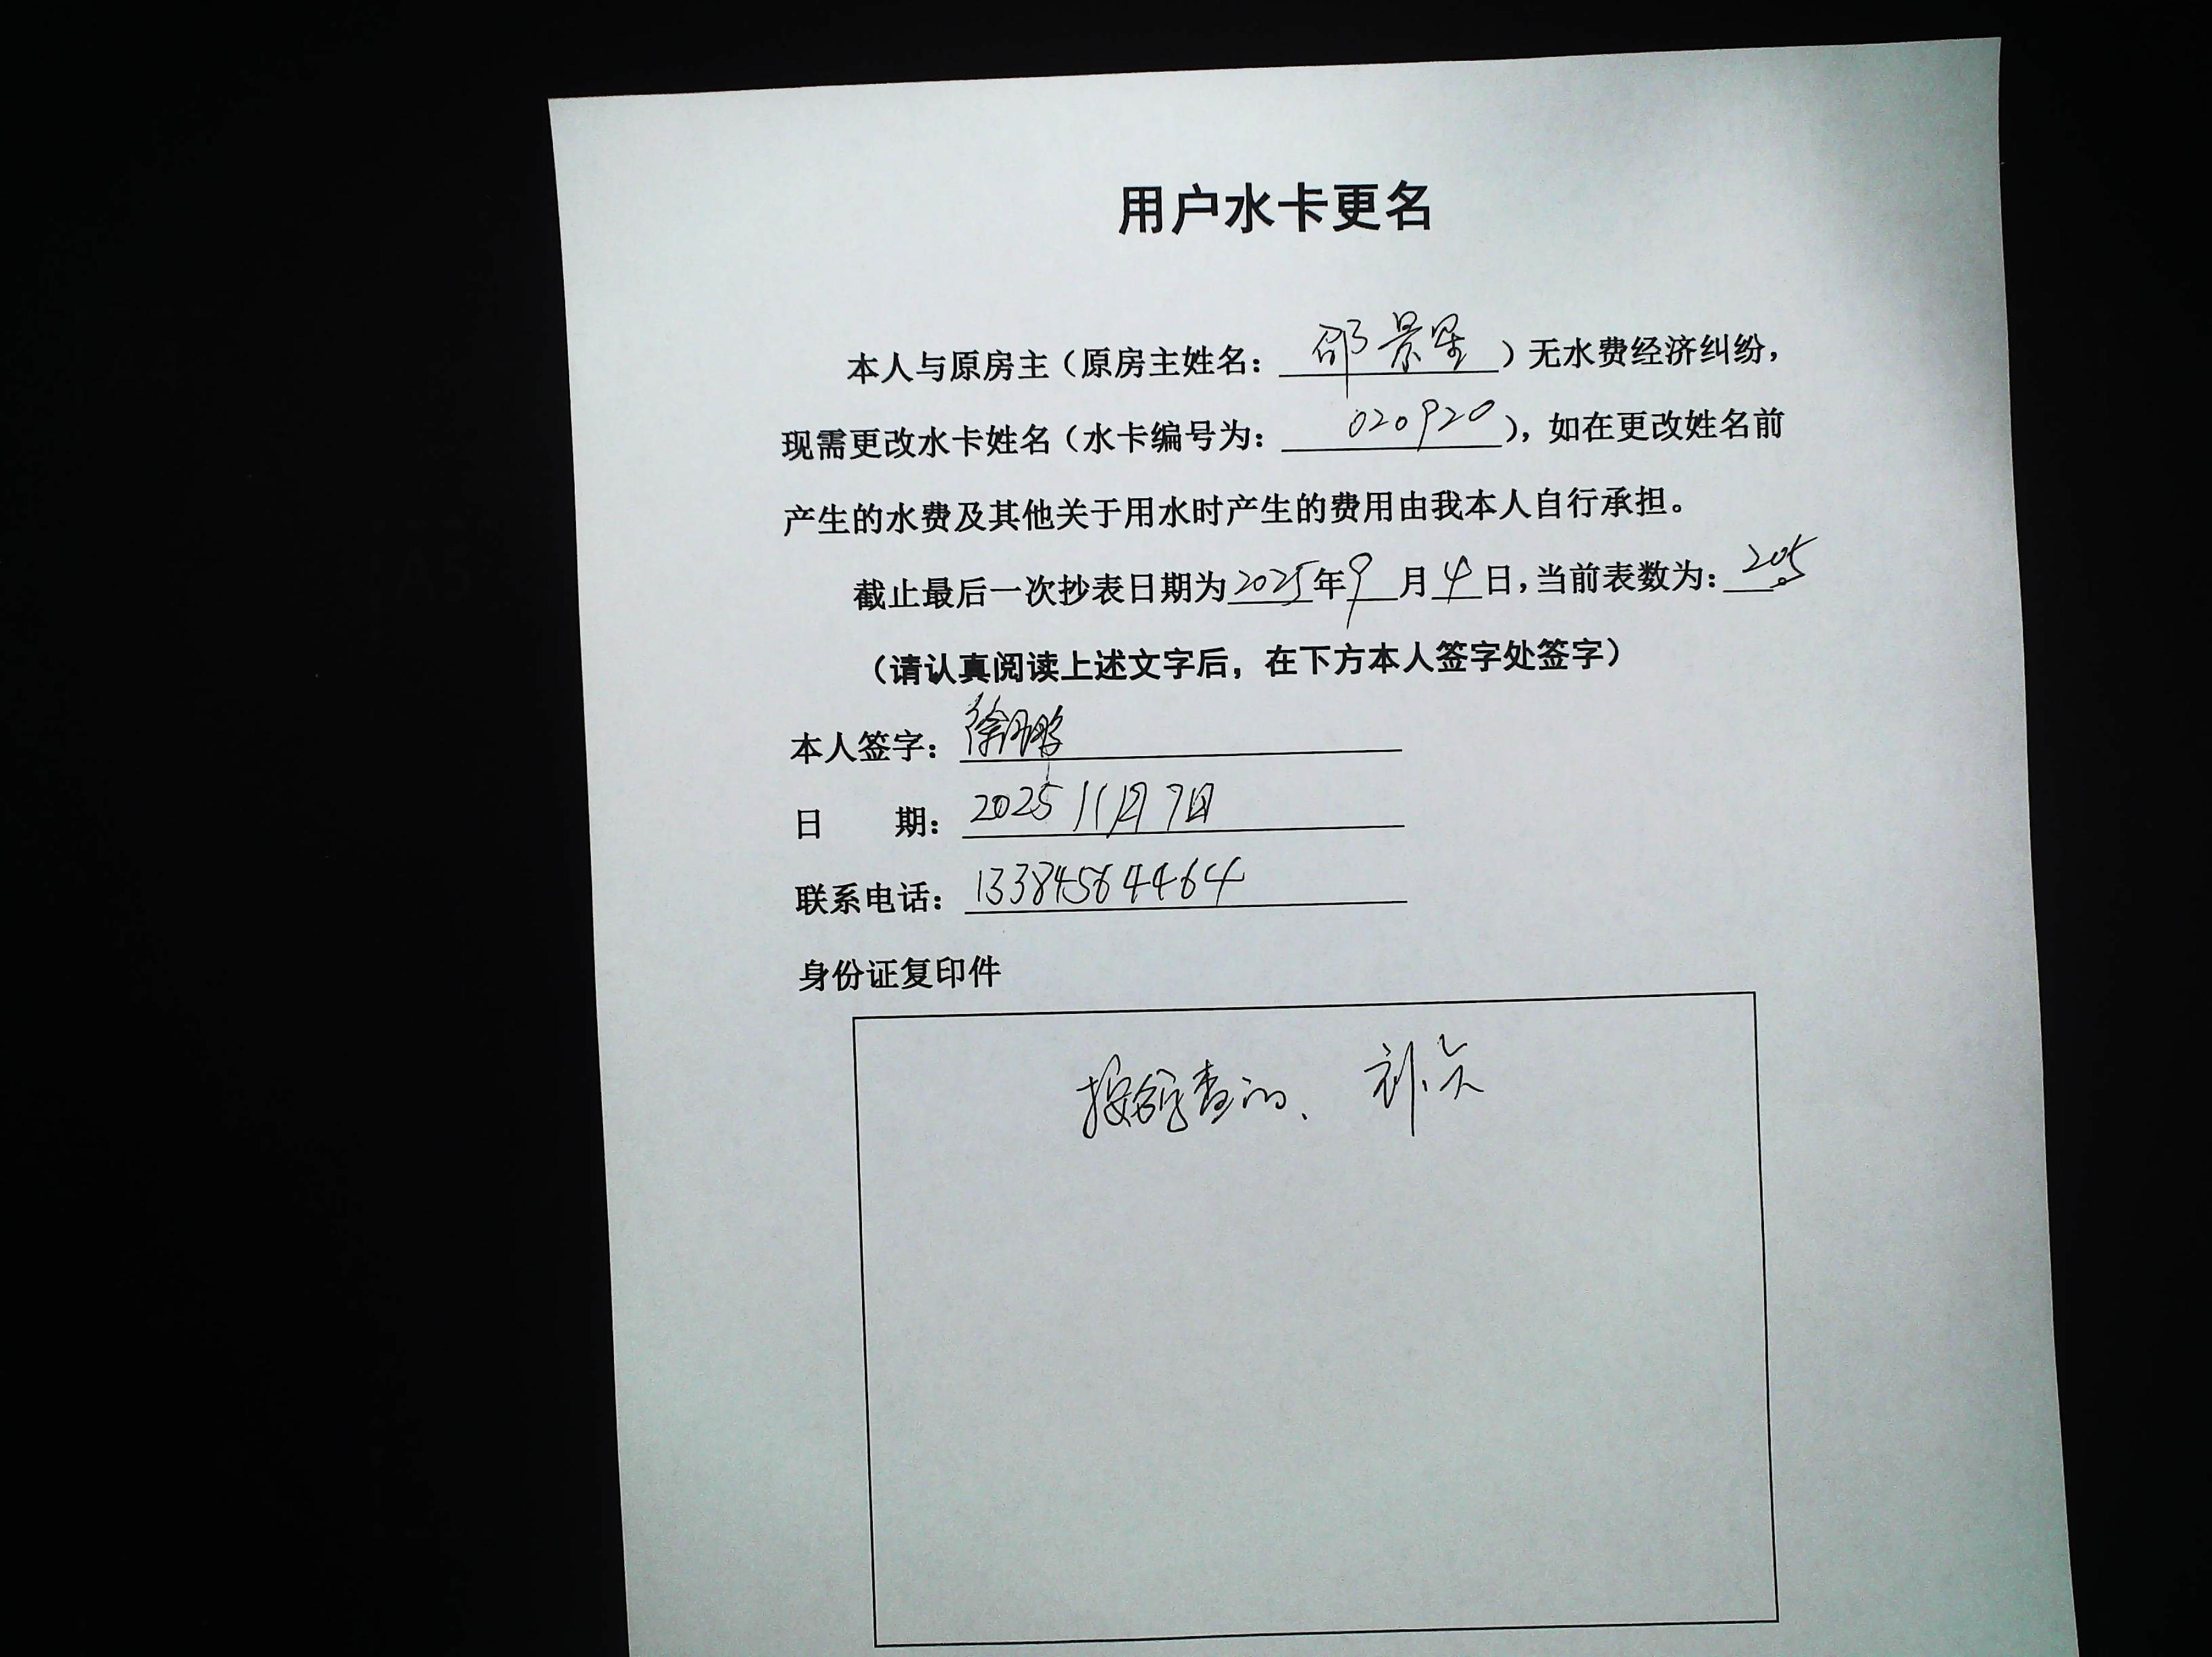 用户水卡更名
本人与原房主（原房主姓名：邵景星）无水费经济纠纷，
现需更改水卡姓名（水卡编号为：020920），如在更改姓名前
产生的水费及其他关于用水时产生的费用由我本人自行承担。
截止最后一次抄表日期为2025年9月4日，当前表数为：205
（请认真阅读上述文字后，在下方本人签字处签字）
本人签字：徐鹏
日 期：2025 11月7日
联系电话：13384564464
身份证复印件
查的、补